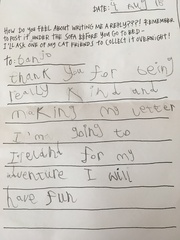 DATE: 9 Aug 18
HOW DO YOU FEEL ABOUT WRITING ME A REPLY??? REMEMBER
TO POST IT UNDER THE SOFA BEFORE YOU GO TO BED -
I'LL ASK ONE OF MY CAT FRIENDS TO COLLECT IT OVERNIGHT!
to: banjo
thank you for being
really kind and
making my letter
I'm going to
Ireland for my
adventure I will
have fun